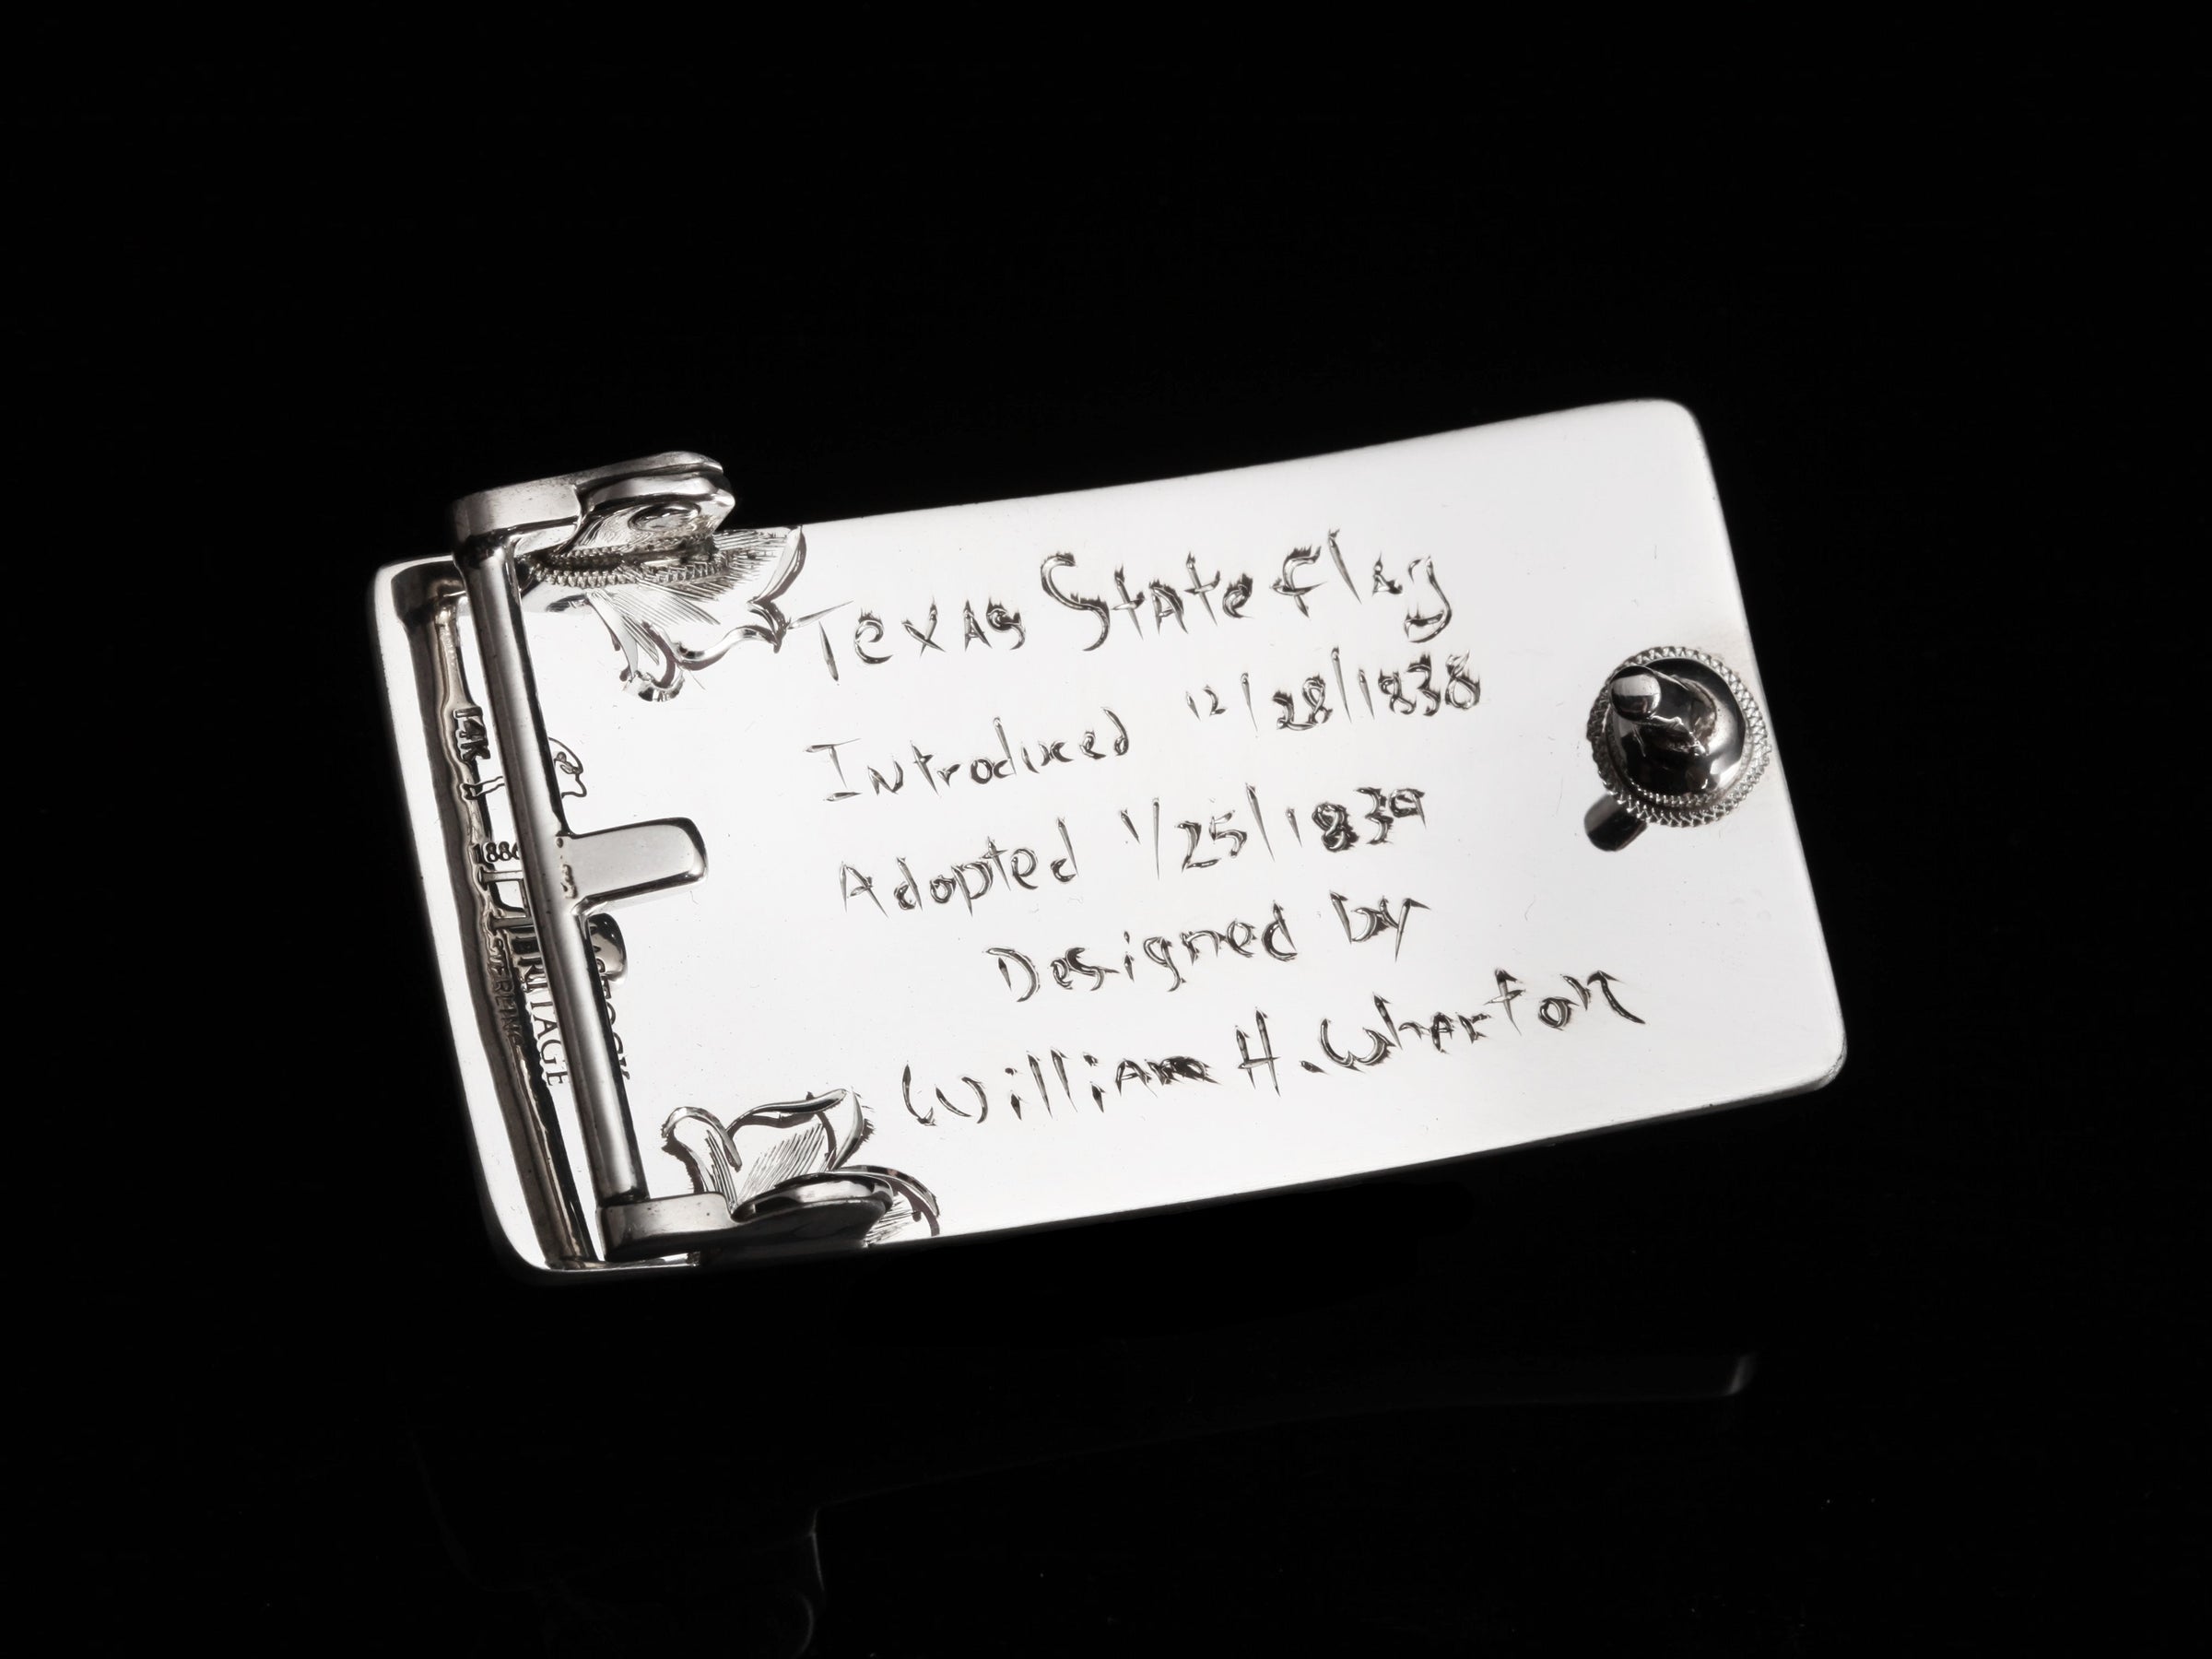 Texas State Flag
Introduced 12/28/1838
Adopted 1/25/1839
Designed by
William H. Wharton
14K
1886
STERLING